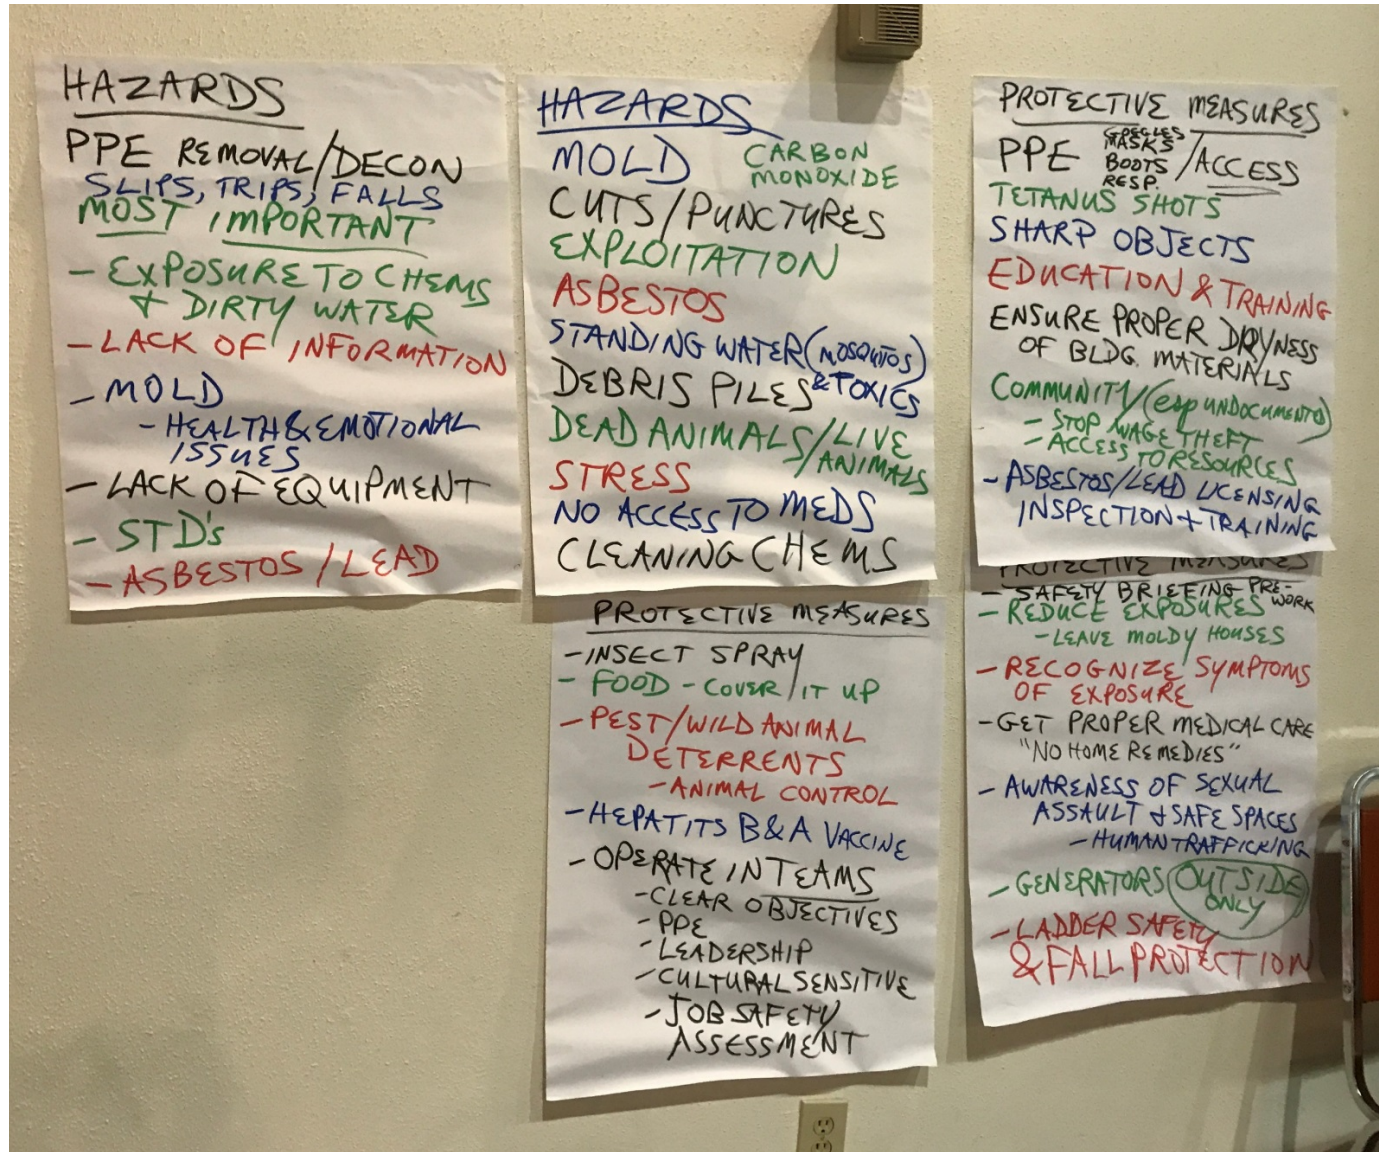 HAZARDS
PPE REMOVAL/DECON
SLIPS, TRIPS, FALLS
MOST IMPORTANT
- EXPOSURE TO CHEMS
+ DIRTY WATER
- LACK OF INFORMATION
- MOLD
- HEALTH & EMOTIONAL
ISSUES
- LACK OF EQUIPMENT
- STD's
- ASBESTOS / LEAD
HAZARDS
MOLD
CARBON
MONOXIDE
CUTS/PUNCTURES
EXPLOITATION
ASBESTOS
STANDING WATER (MOSQUITOS)
& TOXICS
DEBRIS PILES
DEAD ANIMALS/LIVE
ANIMALS
STRESS
NO ACCESS TO MEDS
CLEANING CHEMS
PROTECTIVE MEASURES
- INSECT SPRAY
- FOOD - COVER IT UP
- PEST/WILD ANIMAL
DETERRENTS
- ANIMAL CONTROL
- HEPATITS B&A VACCINE
- OPERATE IN TEAMS
- CLEAR OBJECTIVES
- PPE
- LEADERSHIP
- CULTURAL SENSITIVE
- JOB SAFETY
ASSESSMENT
PROTECTIVE MEASURES
PPE
GOGGLES
MASKS
BOOTS
RESP.
/ACCESS
TETANUS SHOTS
SHARP OBJECTS
EDUCATION & TRAINING
ENSURE PROPER DRYNESS
OF BLDG. MATERIALS
COMMUNITY (esp UNDOCUMENTED)
- STOP WAGE THEFT
- ACCESS TO RESOURCES
- ASBESTOS/LEAD LICENSING
INSPECTION + TRAINING
PROTECTIVE MEASURES
- SAFETY BRIEFING PRE-
WORK
- REDUCE EXPOSURES
- LEAVE MOLDY HOUSES
- RECOGNIZE SYMPTOMS
OF EXPOSURE
- GET PROPER MEDICAL CARE
"NO HOME REMEDIES"
- AWARENESS OF SEXUAL
ASSAULT + SAFE SPACES
- HUMAN TRAFFICKING
- GENERATORS OUTSIDE
ONLY
- LADDER SAFETY
& FALL PROTECTION